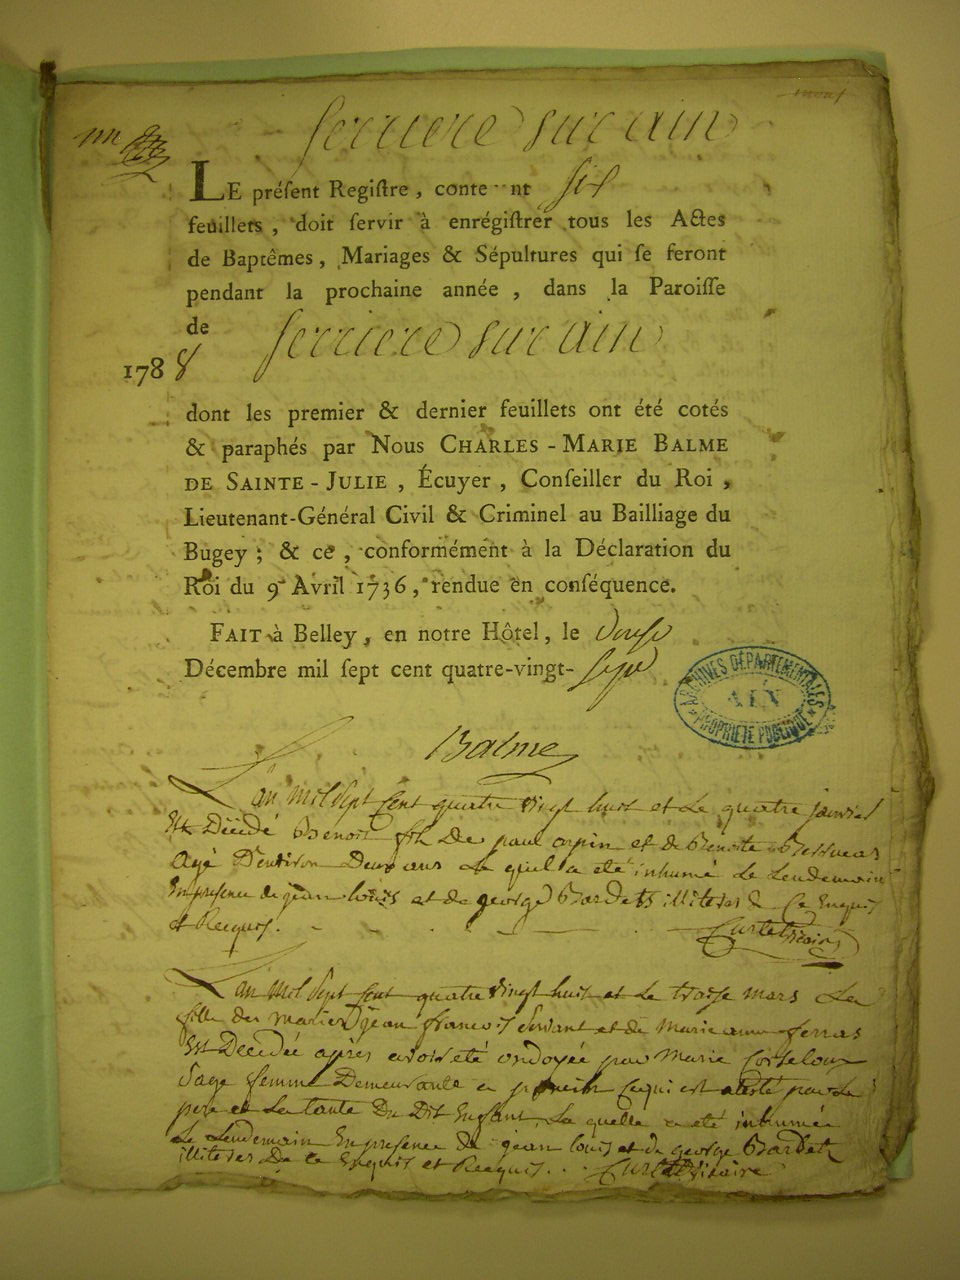 serriere sur ain
LE préſent Regiſtre, conte nt six
feuillets, doit ſervir à enrégiſtrer tous les Actes
de Baptêmes, Mariages & Sépultures qui ſe feront
pendant la prochaine année, dans la Paroiſſe
de serriere sur ain
1788
dont les premier & dernier feuillets ont été cotés
& paraphés par Nous CHARLES-MARIE BALME
DE SAINTE-JULIE, Écuyer, Conſeiller du Roi,
Lieutenant-Général Civil & Criminel au Bailliage du
Bugey; & ce, conformément à la Déclaration du
Roi du 9 Avril 1736, rendue en conſéquence.
FAIT à Belley, en notre Hôtel, le douse
Décembre mil ſept cent quatre-vingt-sept
ARCHIVES DÉPARTEMENTALES
AIN
PROPRIÉTÉ PUBLIQUE
Balme
L'an mil sept cent quatre vingt huit et le quatre janvier
Est Décédé Benoit fils De paul orpin et de Benoite
Agé D'environ Deux ans le quel a été inhumé le lendemain
En presence de jean louis et de george Bardet illiteres De ce Enquis
et Recquis. Curtet vicaire
L'an mil sept cent quatre vingt huit et le troise mars la
fille des maries jean francois servant et de marie anne ferras
Est Decedée après avoir été ondoyée par marie
sage femme Demeurante a ce qui est atesté par le
pere et la tante Du Dit Enfant, la quelle a été inhumée
le lendemain En presence de jean louis et de george Bardet
illiteres De ce Enquis et Recquis. Curtet vicaire